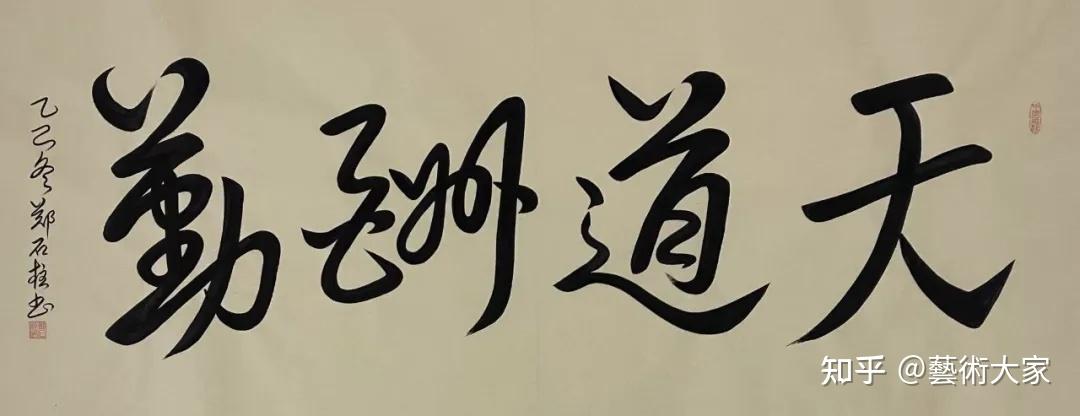 天道酬勤
乙巳冬郑石柱书
知乎 @藝術大家